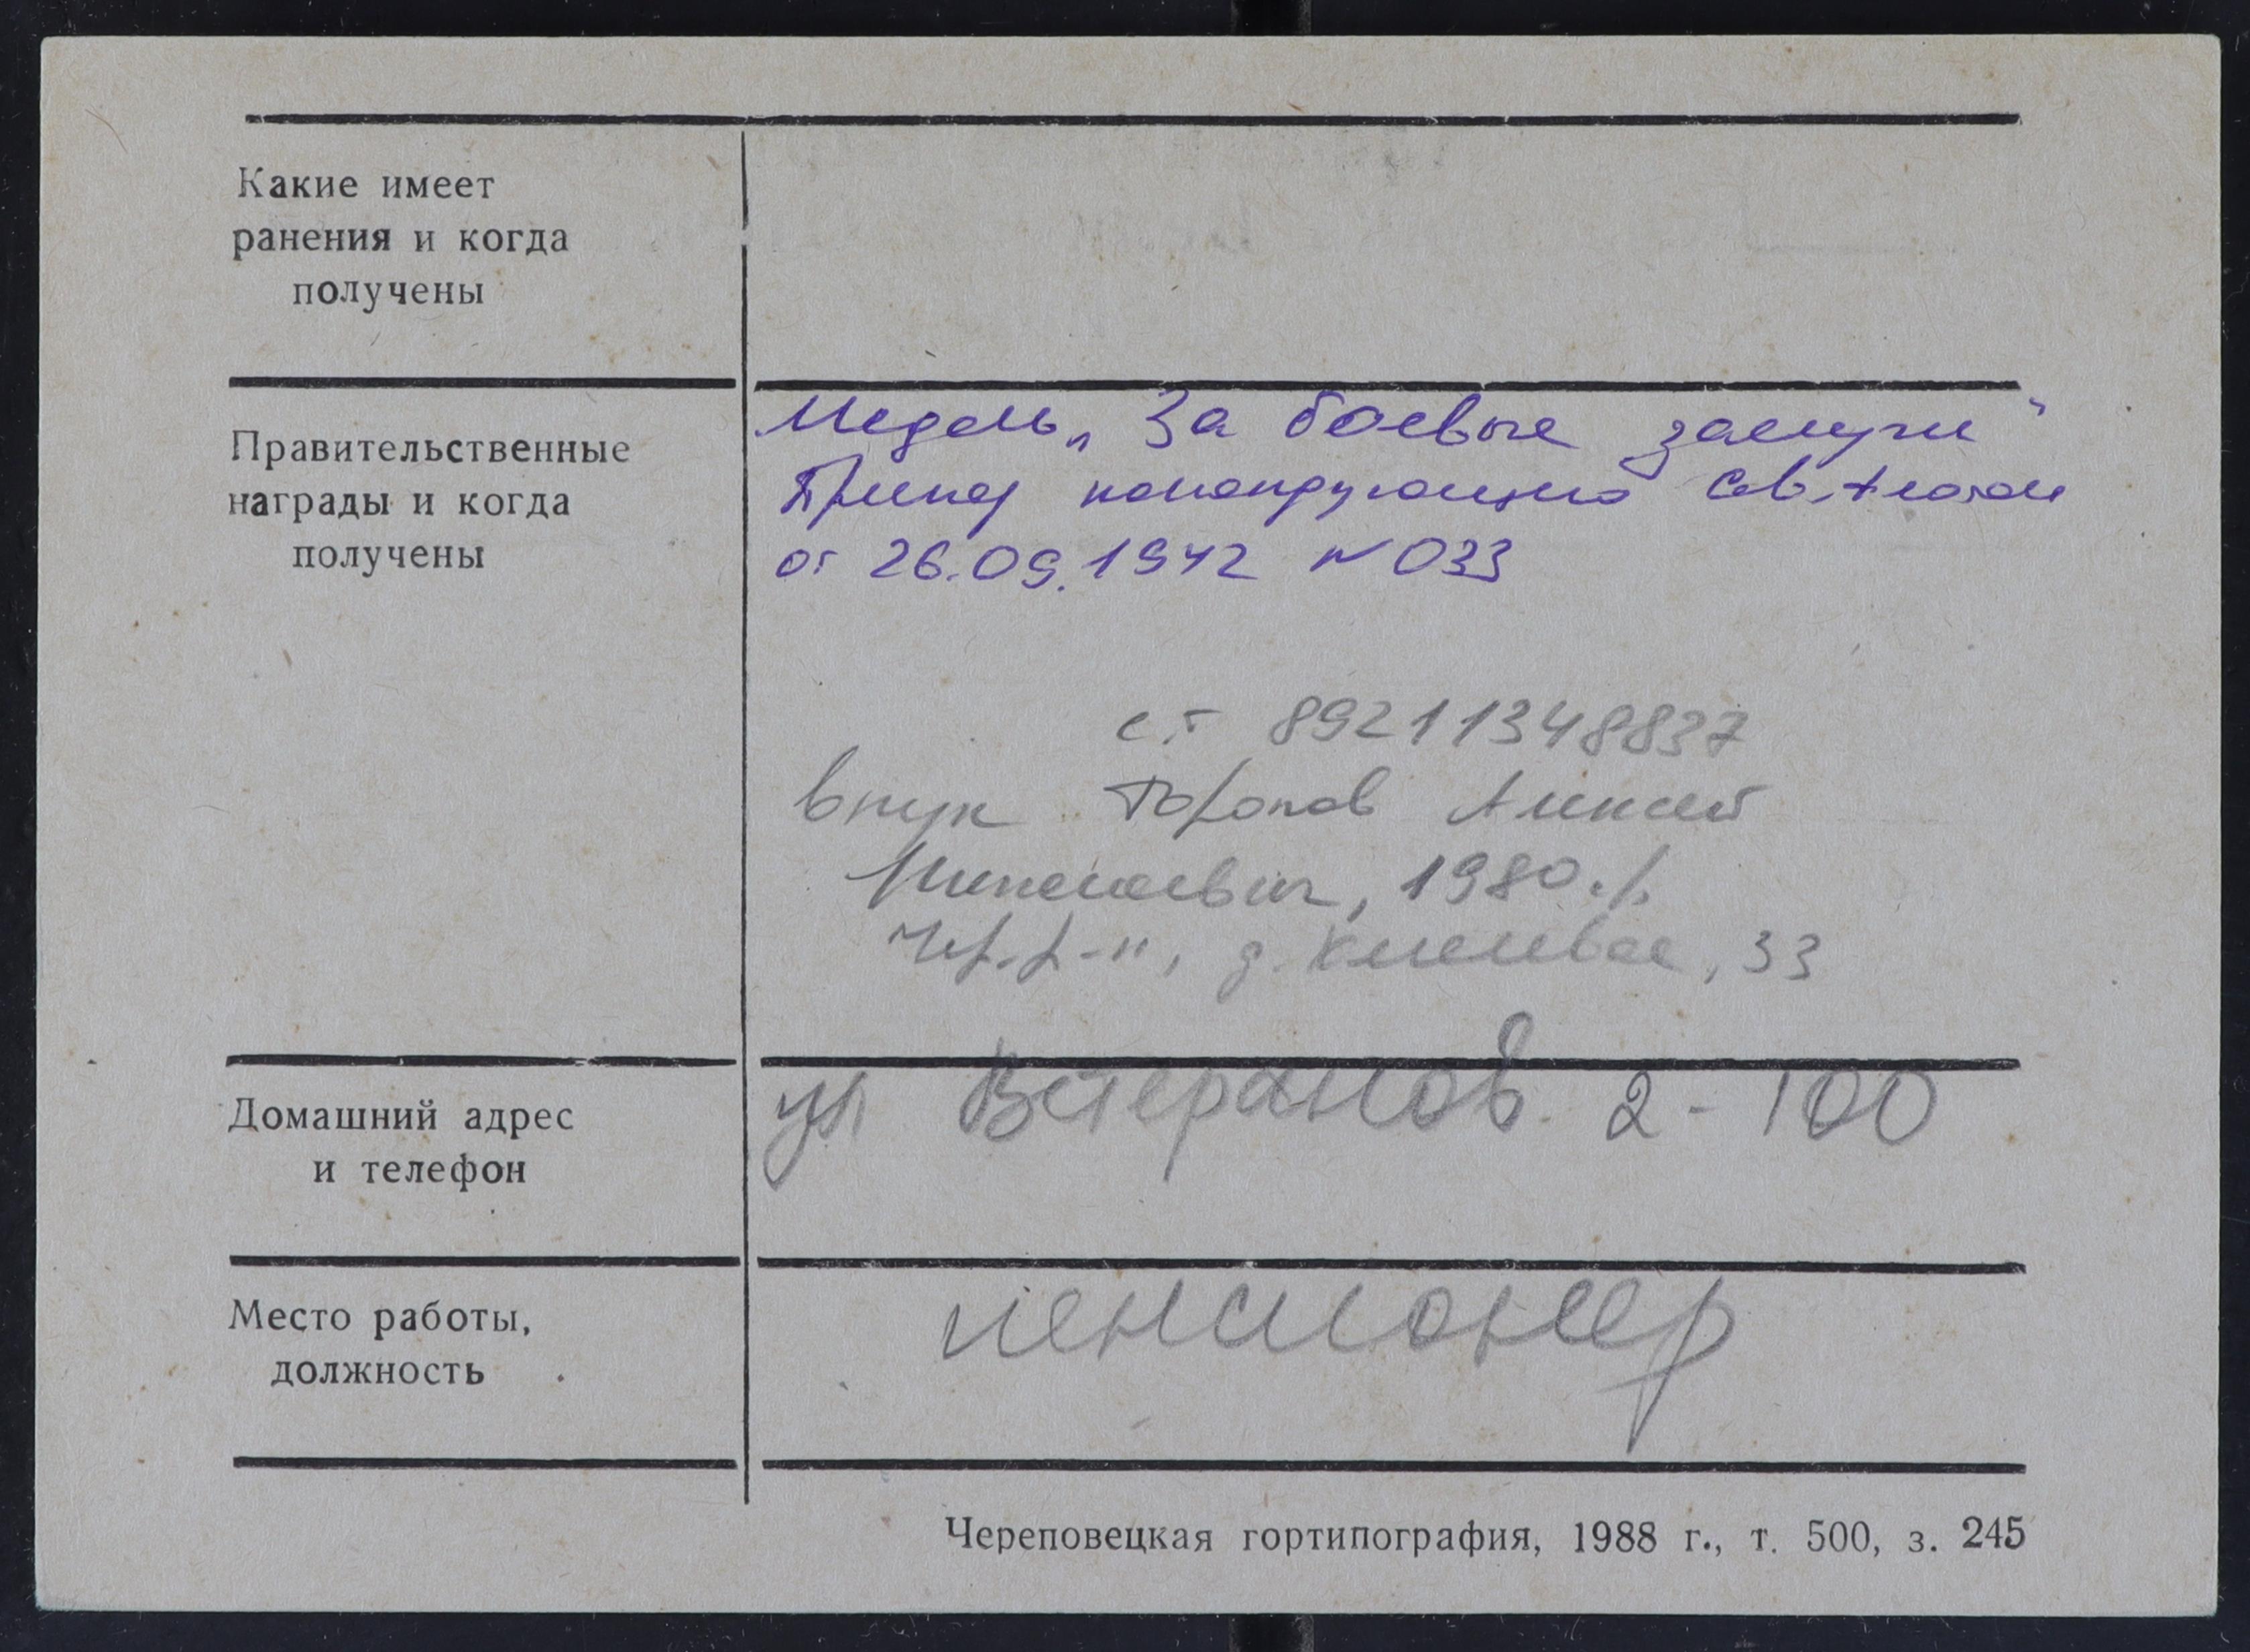 Какие имеет
ранения и когда
получены
Правительственные
награды и когда
получены
Медаль „За боевые заслуги"
Приказ командующего Сев. флотом
от 26.09.1942 N 033
с.т 89211348837
внук Торопов Алексей
Николаевич, 1980 г.р.
Чер. р-н, д. 33
Домашний адрес
и телефон
ул Ветеранов 2-100
Место работы,
должность
пенсионер
Череповецкая гортипография, 1988 г., т. 500, з. 245